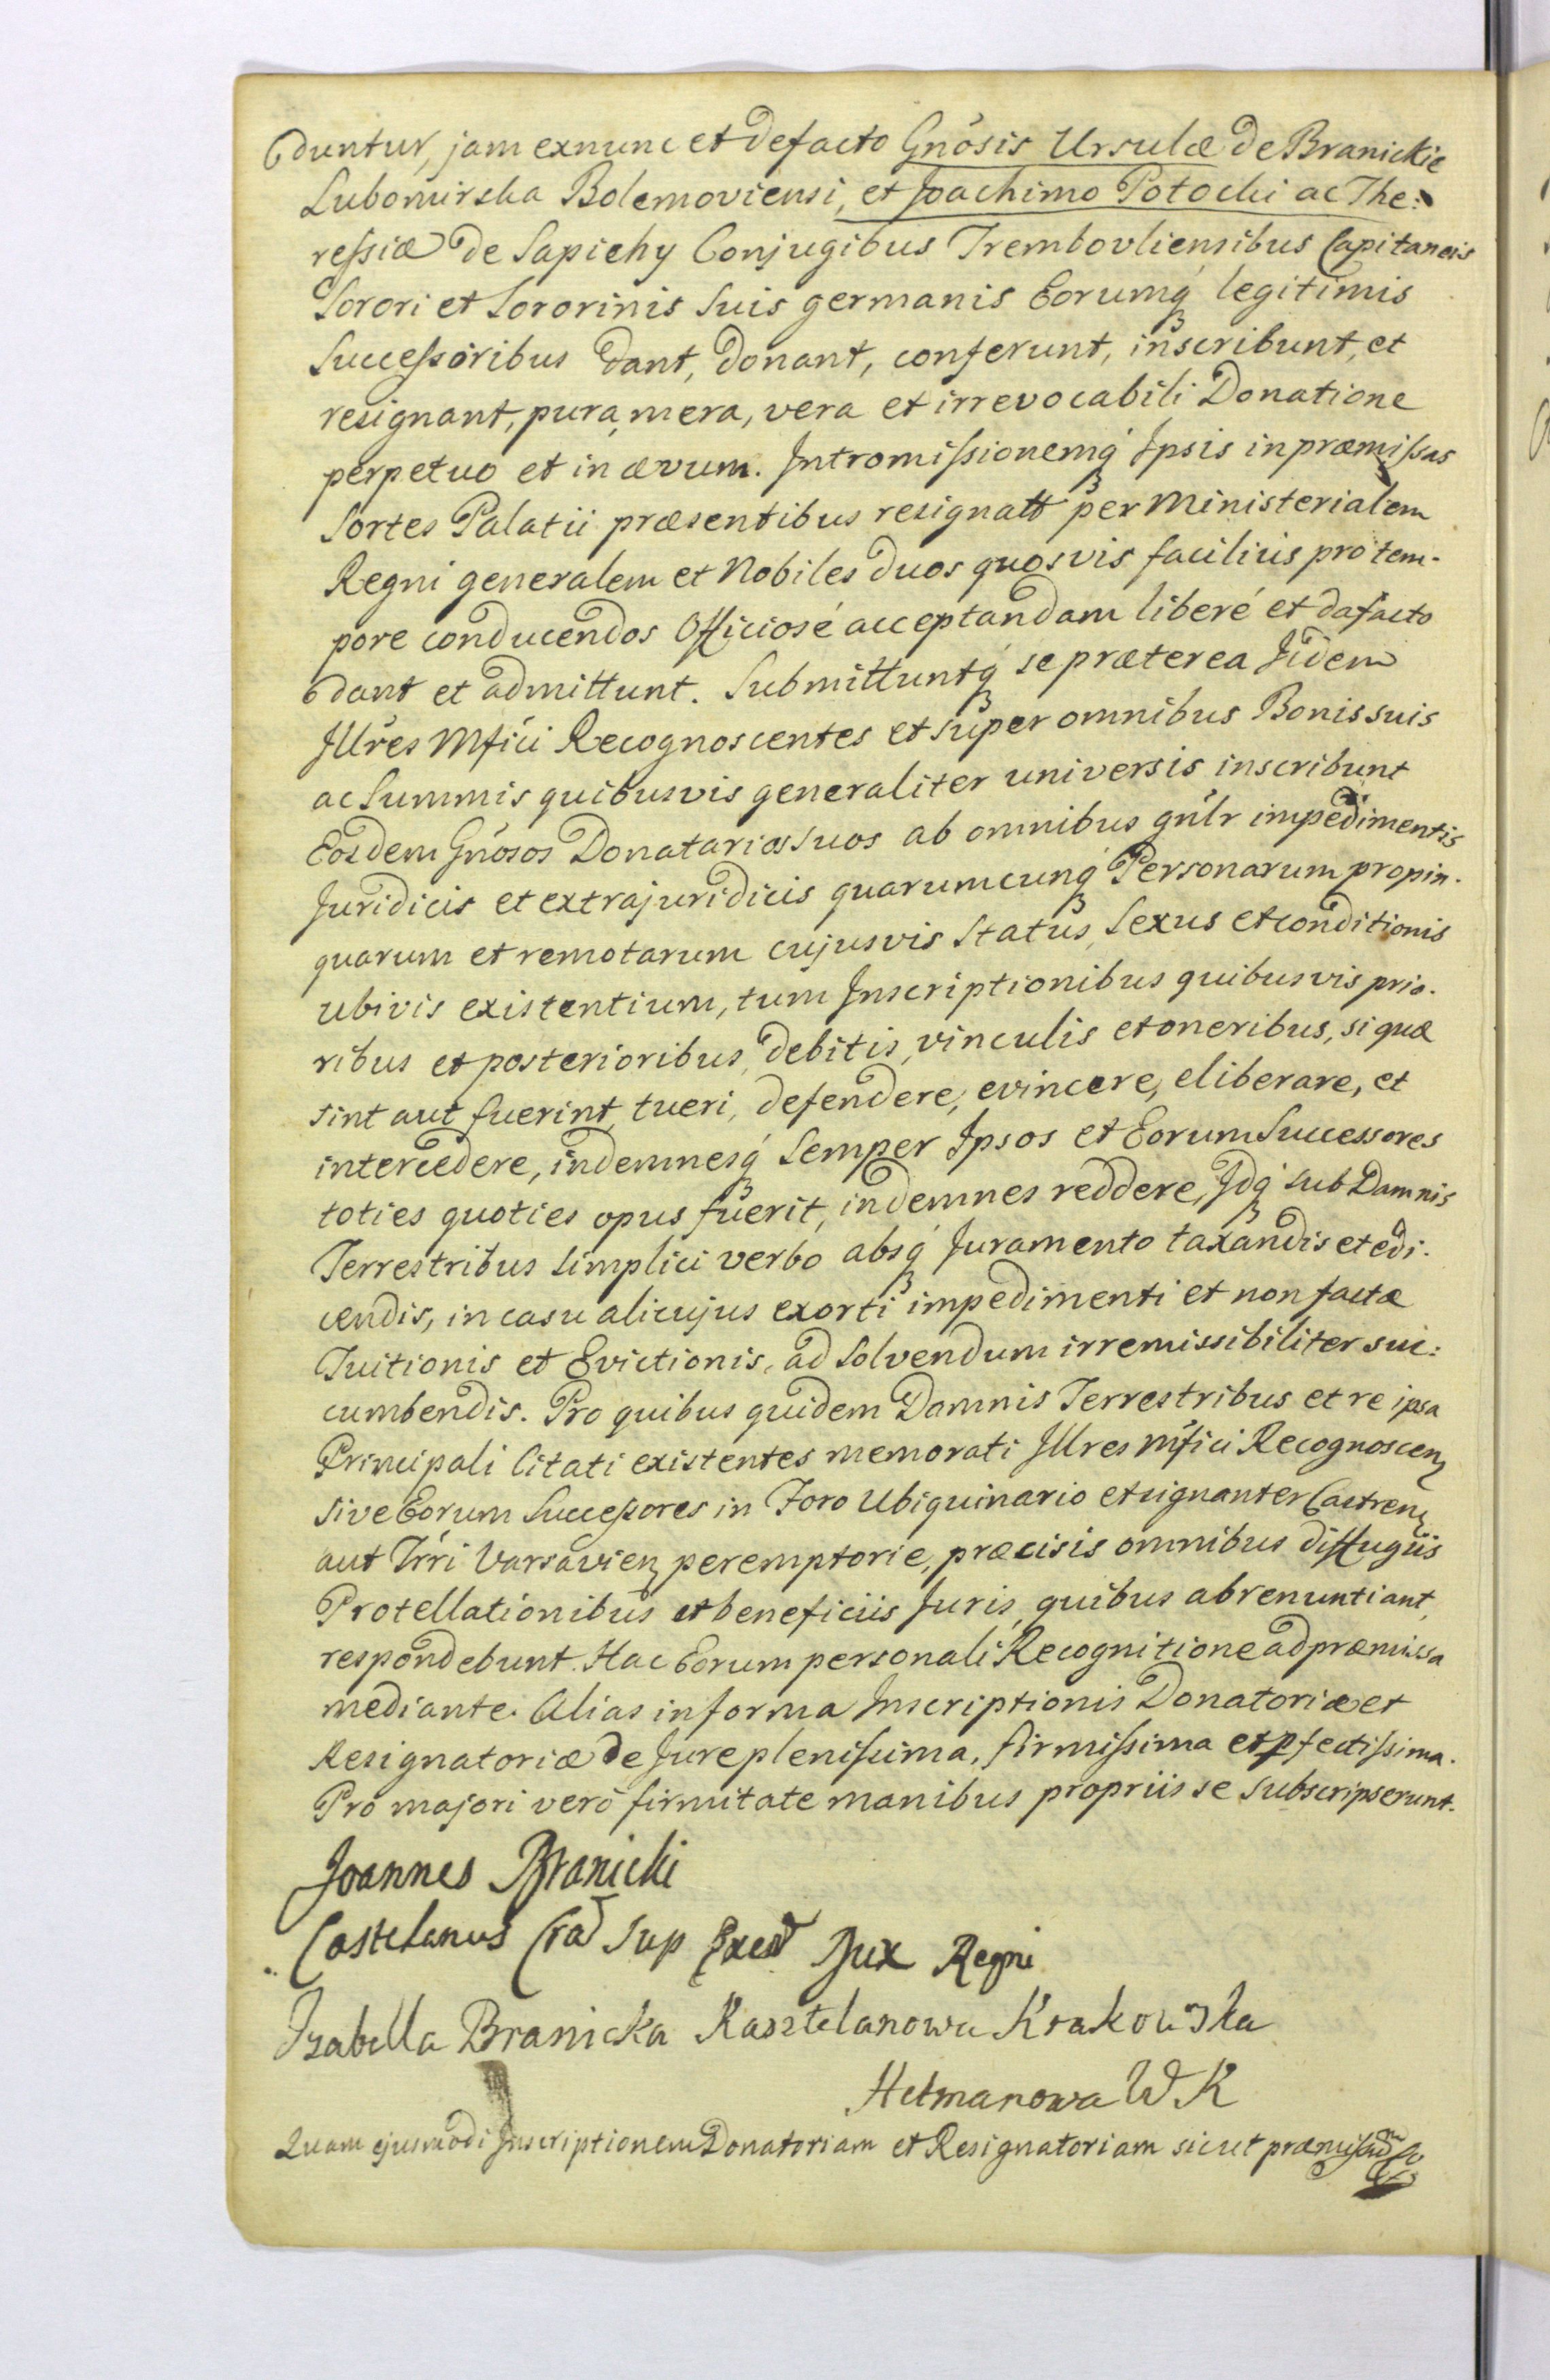 duntur, jam exnunc et defacto Gnosis Ursulæ de Branickie
Lubomirska Bolemoviensi, et Joachimo Potocki ac The:
ressiæ de Sapiehy Conjugibus Trembovliensibus Capitaneis
Sorori et Sororinis Suis germanis Eorumq́ legitimis
Successoribus dant, donant, conferunt, inscribunt, et
resignant, pura, mera, vera et irrevocabili Donatione
perpetuo et in ævum. Intromissionemq́ Ipsis in præmissas
Sortes Palatii præsentibus resignatt per Ministerialem
Regni generalem et Nobiles duos quosvis facilius pro tem-
pore conducendos Officiosé acceptandam liberé et dafacto
dant et admittunt. Submittuntq́ se præterea Iidem
Illres Mfici Recognoscentes et super omnibus Bonis suis
ac Summis quibusvis generaliter universis inscribunt
Eosdem Gnosos Donatarios Suos ab omnibus gnlr impedimentis
Juridicis et extrajuridicis quarumcunq́ Personarum propin-
quarum et remotarum cujusvis Status, Sexus et conditionis
ubivis existentium, tum Inscriptionibus quibusvis prio-
ribus et posterioribus, debitis, vinculis et oneribus, si quæ
sint aut fuerint, tueri, defendere, evincere, eliberare, et
intercedere, indemnesq́ Semper Ipsos et Eorum Successores
toties quoties opus fuerit, indemnes reddere, Idq́ sub Damnis
Terrestribus simplici verbo absq́ Juramento taxandis et edi-
cendis, in casu alicujus exorti impedimenti et non factæ
Tuitionis et Evictionis, ad Solvendum irremissibiliter suc:
cumbendis. Pro quibus quidem Damnis Terrestribus et re ipsa
Principali Citati existentes memorati Illres mfici Recognoscenz
sive Eorum Successores in Foro Ubiquinario et signanter Castrenz
aut Trri Varsavienz peremptorie, præcisis omnibus diffugiis
Protellationibus et beneficiis Juris, quibus abrenuntiant,
respondebunt. Hac Eorum personali Recognitione ad præmissa
mediante. Alias in forma Inscriptionis Donatoriæ et
Resignatoriæ de Jure plenissima, firmissima et pfectissima.
Pro majori veró firmitate manibus propriis se subscripserunt.
Joannes Branicki
Castelanus Crad Sup Exerd Dux Regni
Izabella Branicka Kasztelanowa Krakowska
Hetmanowa W K
Quam ejusmodi Inscriptionem Donatoriam et Resignatoriam sicut